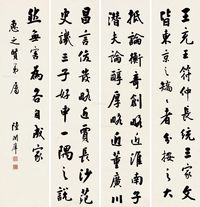 王充王符仲長統三家文
皆東京之矯矯者分按之大
抵論衡奇創略近淮南子
潛夫論醇厚略近董廣川
昌言俊發略近賈長沙范
史譏三子好申一隅之說
然無害為各自成家
惠之賢弟屬
陸潤庠